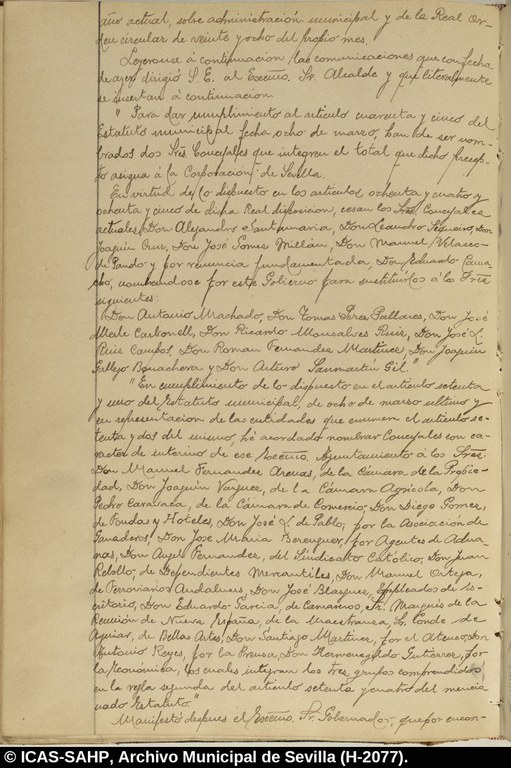 año actual, sobre administración municipal y de la Real Or-
den circular de veinte y ocho del propio mes.
Leyeronse á continuacion las comunicaciones que con fecha
de ayer dirigió S. E. al Excmo. Sr. Alcalde y que literalmente
se insertan á continuacion
" Para dar cumplimiento al articulo cuarenta y cinco del
Estatuto municipal fecha ocho de marzo, han de ser nom-
brados dos Sres. Concejales que integren el total que dicho precep-
to asigna á la Corporación de Sevilla.
En virtud de lo dispuesto en los articulos ochenta y cuatro y
ochenta y cinco de dicha Real disposicion, cesan los Sres. Concejales
actuales, Don Alejandro Santamaria, Don Leandro Sequeiros, Don
Joaquin Cruz, Don José Gomez Millán, Don Manuel Velasco
de Pando y por renuncia fundamentada, Don Eduardo Cama-
cho, nombrandose por este Gobierno para sustituirlos á lo Sres
siguientes:
Don Antonio Machado, Don Tomas Perez Pallares, Don José
Merle Carbonell, Don Ricardo Monsalves Ruiz, Don José L.
Ruiz Campos, Don Roman Fernandez Martinez, Don Joaquin
Gallego Bonachera y Don Arturo Sanmartin Gil."
"En cumplimiento de lo dispuesto en el articulo setenta
y uno del Estatuto municipal, de ocho de marzo ultimo y
en representacion de las entidades que enumera el articulo se-
tenta y dos del mismo, hé acordado nombrar Concejales con ca-
racter de interino de ese Excmo. Ayuntamiento á los Sres:
Don Manuel Fernandez Arenas, de la Cámara de la Propie-
dad, Don Joaquin Vazquez, de la Cámara Agricola, Don
Pedro Caravaca, de la Cámara de Comercio, Don Diego Gomez,
de Fondas y Hoteles, Don José L. de Pablo, por la Asociación de
Ganaderos, Don José Maria Berenguer, por Agentes de Adua-
nas, Don Angel Fernandez, del Sindicato Católico, Don Juan
Rebollo, de Dependientes Mercantiles, Don Manuel Ortega,
de Ferroviarios Andaluces, Don José Blazquez, Empleados de Es-
critorio, Don Eduardo Garcia, de Camareros, Sr. Marqués de la
Reunión de Nueva España, de la Maestranza, Sr. Conde de
Aguiar, de Bellas Artes, Don Santiago Martinez, por el Ateneo, Don
Antonio Reyes, por la Prensa, Don Hermenegildo Gutierrez, por
la Económica, los cuales integran los tres grupos comprendidos
en la regla segunda del articulo setenta y cuatro del mencio-
nado Estatuto."
Manifestó despues el Excmo. Sr. Gobernador, que por encon-
© ICAS-SAHP, Archivo Municipal de Sevilla (H-2077).